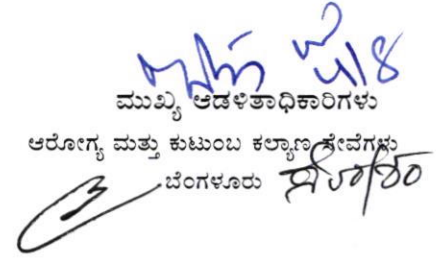 ಮುಖ್ಯ ಆಡಳಿತಾಧಿಕಾರಿಗಳು
ಆರೋಗ್ಯ ಮತ್ತು ಕುಟುಂಬ ಕಲ್ಯಾಣ ಸೇವೆಗಳು
ಬೆಂಗಳೂರು